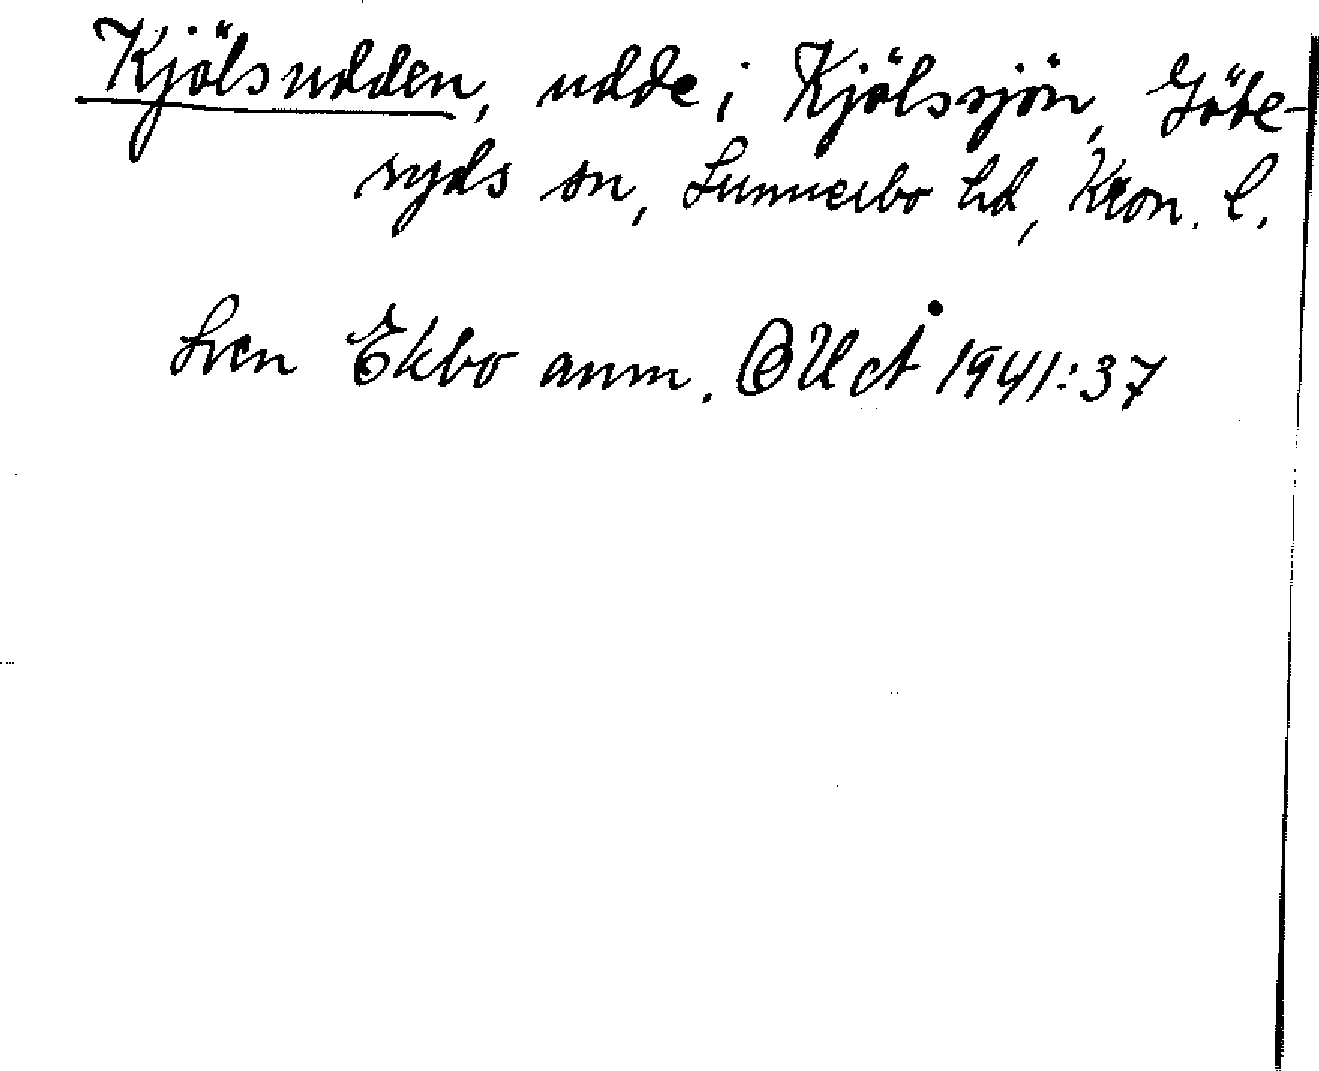 Kjölsudden, udde i Kjölssjön, Göte-
ryds sn, Sunnerbo hd, Kron. l.
Sven Ekbo anm. OUÅ 1941:37